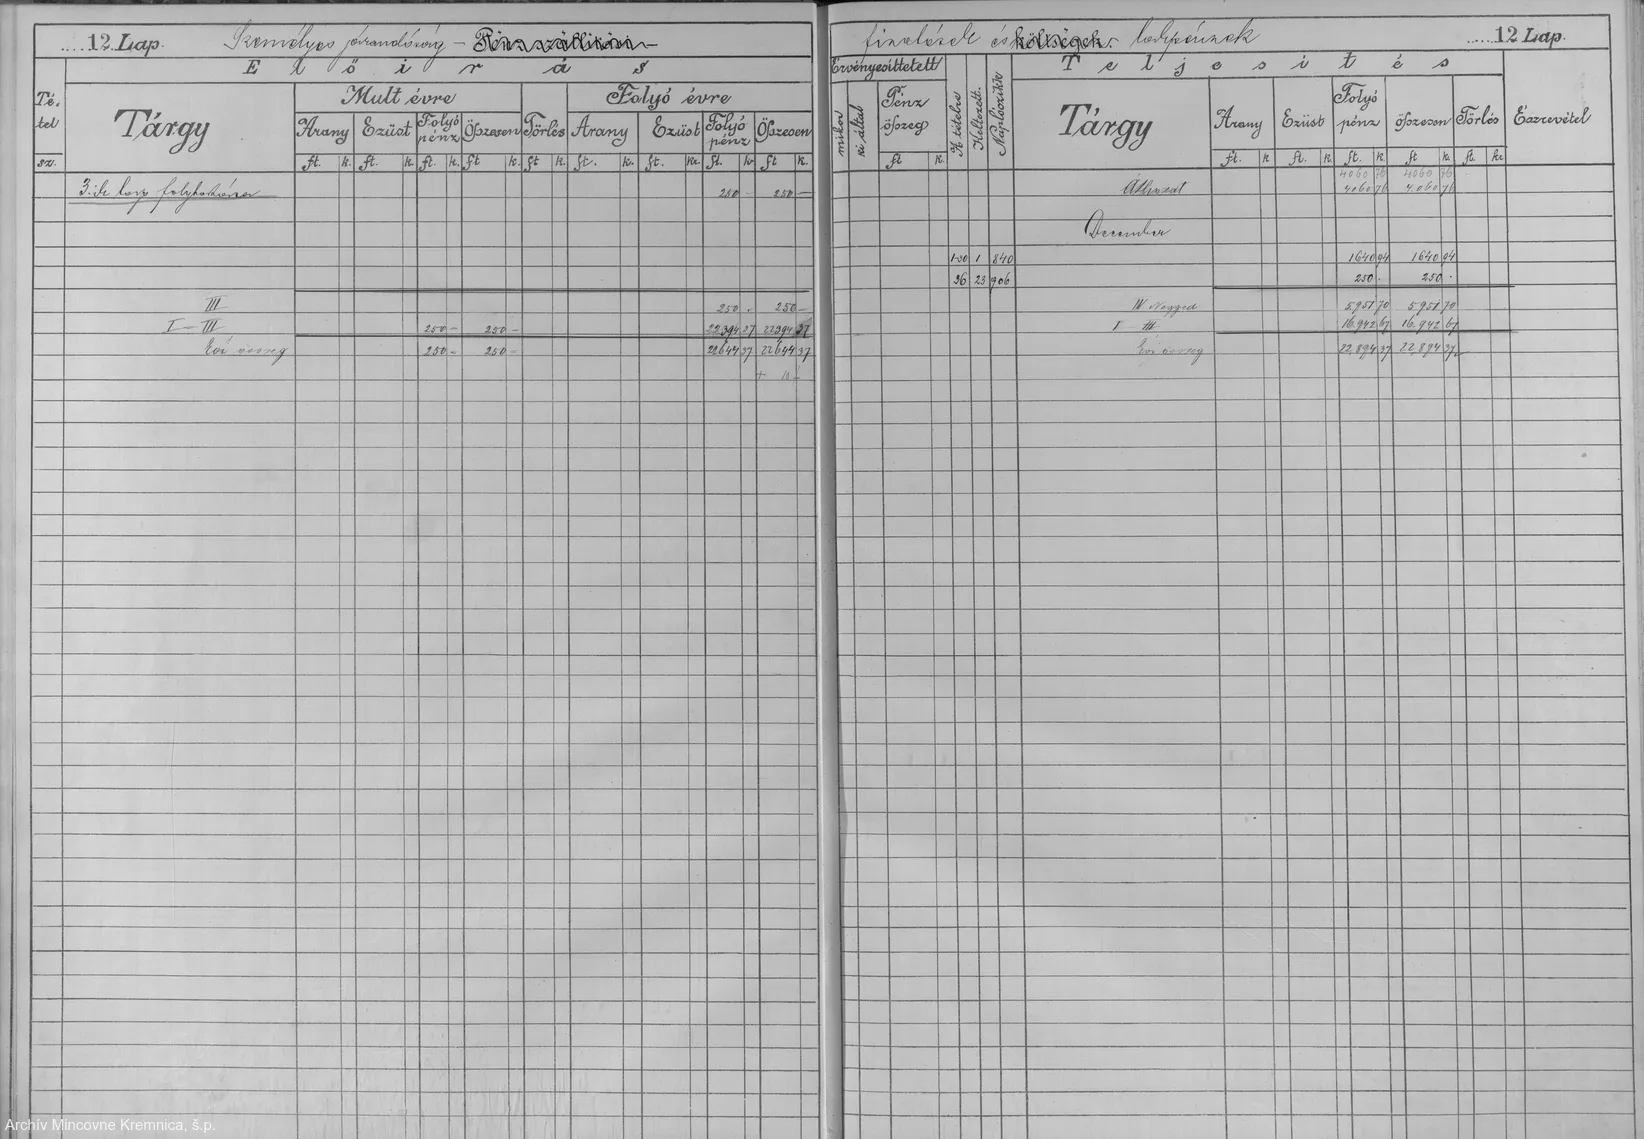 12. Lap. Személyes járandóság – Pénzszállitási –
E l ő i r á s
Té- tel sz. Tárgy Mult évre Folyó évre
Arany Ezüst Folyó pénz Összesen Törlés Arany Ezüst Folyó pénz Összesen
ft. k. ft. k. ft. k. ft k. ft k. ft. k. ft. kr. ft. kr ft k.
3. ik lap folytatása 250 – 250 –
III 250 . 250 –
I – III 250 – 250 – 22394 37 22394 37
Évi összeg 250 – 250 – 22644 37 22644 37
+ 10 –
fizetések és költségek. 12 Lap.
Érvényesíttetett T e l j e s i t é s
mikor ki által Pénz összeg A tételre Keltezett. Naplóczikk Tárgy Arany Ezüst Folyó pénz Összesen Törlés Észrevétel
ft k. ft. k ft. k. ft. k. ft k. ft. kr
4060 76 4060 76
Áthozat 4060 76 4.060 76
December
1-30 1 840 1640 94 1640 94
36 23 906 250 . 250 .
IV Negyed 5951 70 5951 70
I – III 16.942 67 16.942 67
Évi összeg 22.894 37 22.894 37
Archív Mincovne Kremnica, š.p.